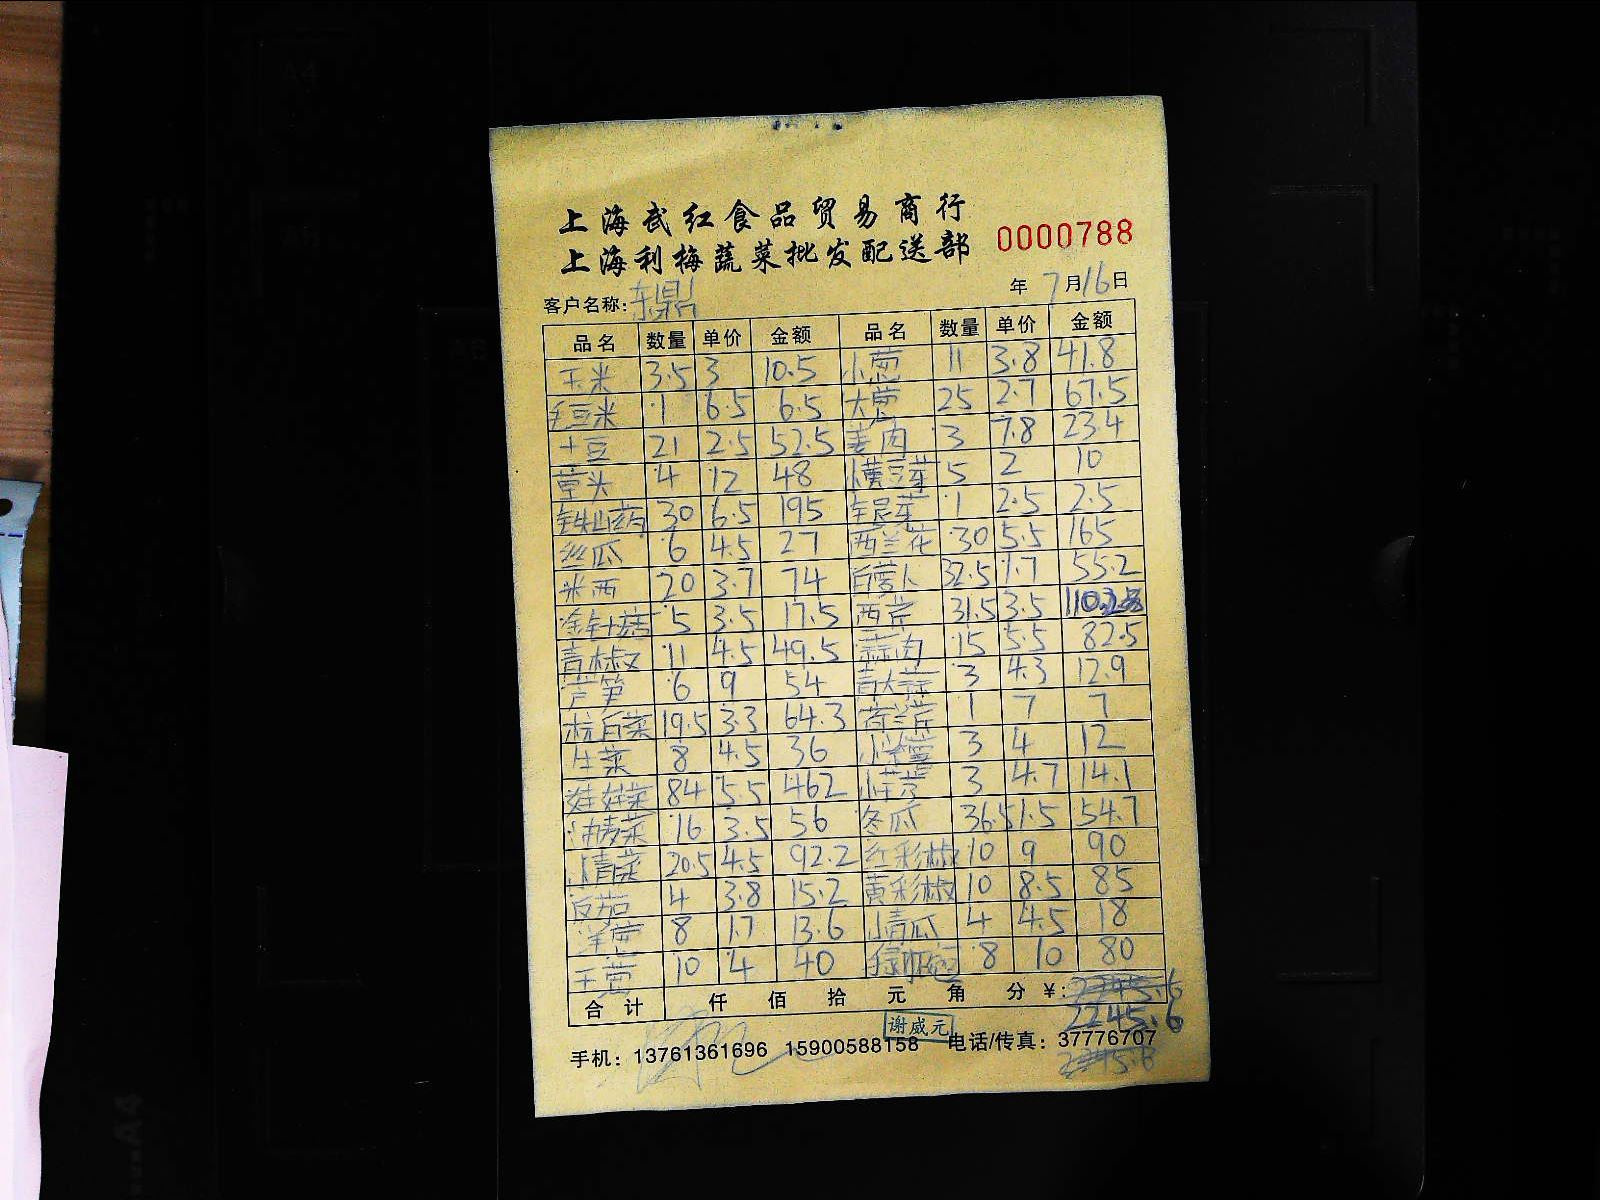 上海武红食品贸易商行
上海利梅蔬菜批发配送部 0000788
年 7月16日
客户名称: 东鼎
品名 数量 单价 金额 品名 数量 单价 金额
玉米 3.5 3 10.5 小葱 11 3.8 41.8
毛豆米 1 6.5 6.5 大葱 25 2.7 67.5
土豆 21 2.5 52.5 姜肉 3 7.8 23.4
4 12 48 黄豆芽 5 2 10
铁山药 30 6.5 195 银芽 1 2.5 2.5
丝瓜 6 4.5 27 西兰花 30 5.5 165
米西 20 3.7 74 白萝卜 32.5 1.7 55.2
金针菇 5 3.5 17.5 西芹 31.5 3.5
青椒 11 4.5 49.5 蒜肉 15 5.5 82.5
芦笋 6 9 54 青大蒜 3 4.3 12.9
杭白菜 19.5 3.3 64.3 荷兰芹 1 7 7
生菜 8 4.5 36 3 4 12
娃娃菜 84 5.5 462 3 4.7 14.1
油麦菜 16 3.5 56 冬瓜 36.5 1.5 54.7
小青菜 20.5 4.5 92.2 红彩椒 10 9 90
4 3.8 15.2 黄彩椒 10 8.5 85
洋葱 8 1.7 13.6 小青瓜 4 4.5 18
10 4 40 8 10 80
合计 仟 佰 拾 元 角 分 ¥: 2245.6
2245.6
谢威元
手机: 13761361696 15900588158 电话/传真: 37776707